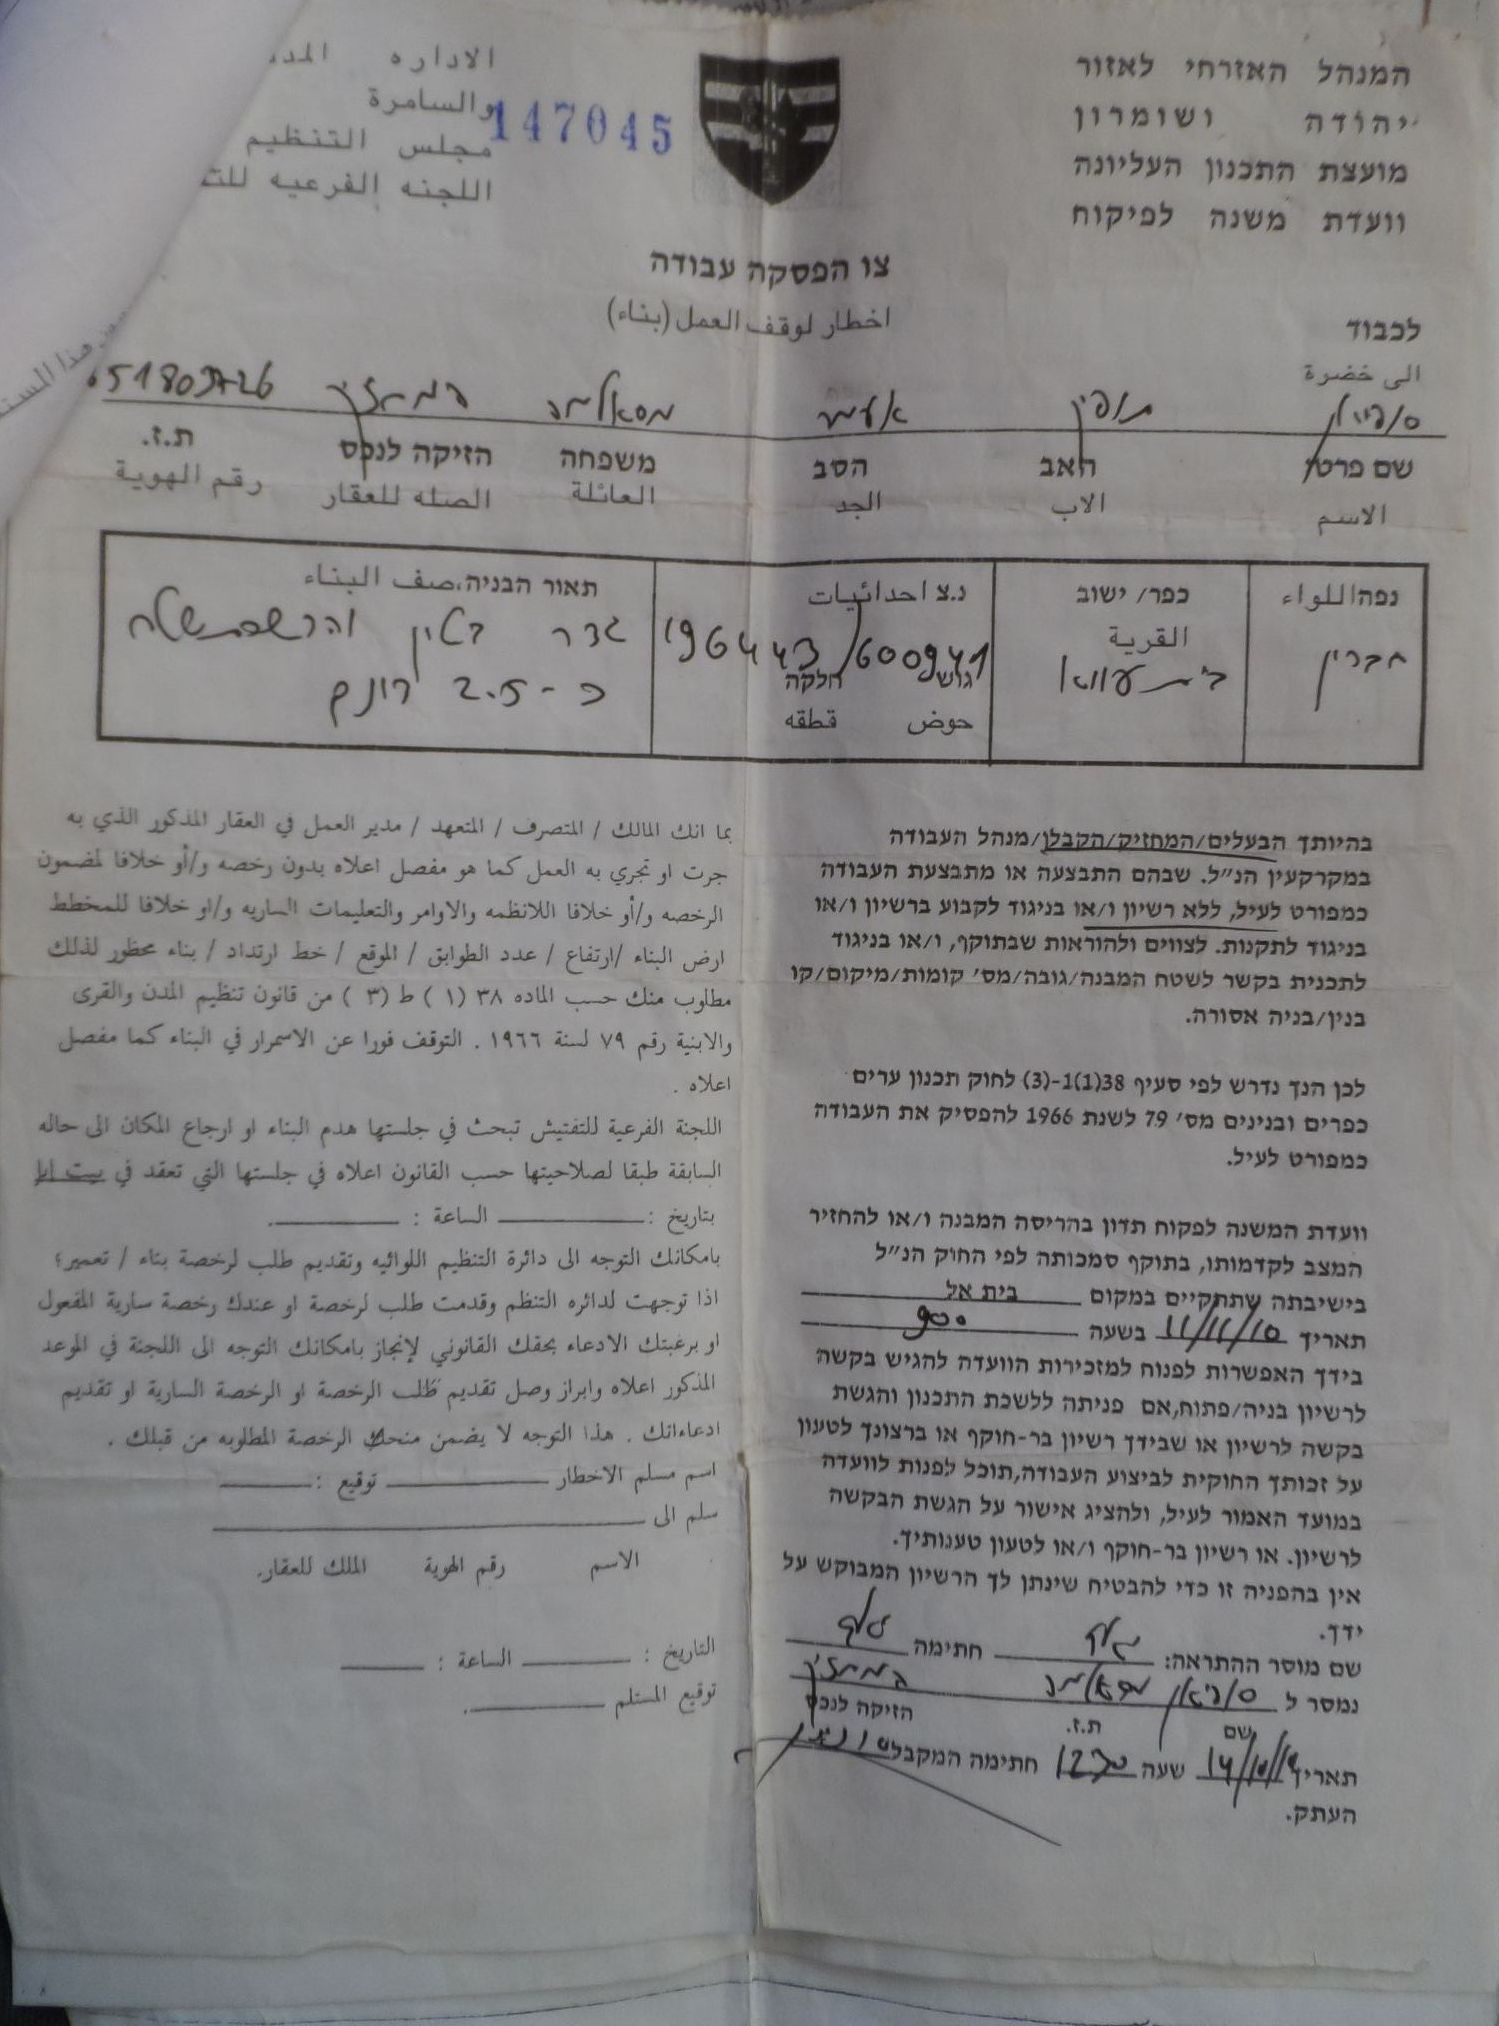 המנהל האזרחי לאזור
יהודה ושומרון
מועצת התכנון העליונה
וועדת משנה לפיקוח
الاداره
والسامرة
مجلس التنظيم
اللجنه الفرعيه
147045
هذا
צו הפסקה עבודה
اخطار لوقف العمل (بناء)
לכבוד
الى خضرة
מסאלמה המחזיק
שם פרטי האב הסב משפחה הזיקה לנכס ת.ז.
الاسم الاب الجد العائلة الصله للعقار رقم الهوية
נפה اللواء כפר/ ישוב נ.צ احداثيات תאור הבניה، صف البناء
القرية
חברון בית עווא 196443/600941 גדר בטון
גוש חלקה
حوض قطقه
כ-2.5 דונם
בהיותך הבעלים/המחזיק/הקבלן/מנהל העבודה
במקרקעין הנ״ל. שבהם התבצעה או מתבצעת העבודה
כמפורט לעיל, ללא רשיון ו/או בניגוד לקבוע ברשיון ו/או
בניגוד לתקנות. לצווים ולהוראות שבתוקף, ו/או בניגוד
לתכנית בקשר לשטח המבנה/גובה/מס׳ קומות/מיקום/קו
בנין/בניה אסורה.
לכן הנך נדרש לפי סעיף 38(1)1-(3) לחוק תכנון ערים
כפרים ובנינים מס׳ 79 לשנת 1966 להפסיק את העבודה
כמפורט לעיל.
וועדת המשנה לפקוח תדון בהריסה המבנה ו/או להחזיר
המצב לקדמותו, בתוקף סמכותה לפי החוק הנ״ל
בישיבתה שתתקיים במקום בית אל
תאריך 11/11/10 בשעה 900
בידך האפשרות לפנוח למזכירות הוועדה להגיש בקשה
לרשיון בניה/פתוח,אם פניתה ללשכת התכנון והגשת
בקשה לרשיון או שבידך רשיון בר-חוקף או ברצונך לטעון
על זכותך החוקית לביצוע העבודה,תוכל לפנות לוועדה
במועד האמור לעיל, ולהציג אישור על הגשת הבקשה
לרשיון. או רשיון בר-חוקף ו/או לטעון טענותיך.
אין בהפניה זו כדי להבטיח שינתן לך הרשיון המבוקש על
ידך.
שם מוסר ההתראה: חתימה
נמסר ל מסאלמה המחזיק
שם ת.ז. הזיקה לנכס
תאריך 14/10/10 שעה 1230 חתימה המקבל
העתק.
بما انك المالك / المتصرف / المتعهد / مدير العمل في العقار المذكور الذي به
جرت او تجري به العمل كما هو مفصل اعلاه بدون رخصه و/أو خلافا لمضمون
الرخصه و/أو خلافا اللانظمه والاوامر والتعليمات الساريه و/او خلافا للمخطط
ارض البناء /ارتفاع / عدد الطوابق / الموقع / خط ارتداد / بناء محظور لذلك
مطلوب منك حسب الماده ٣٨ (١) ط (٣) من قانون تنظيم المدن والقرى
والابنية رقم ٧٩ لسنة ١٩٦٦ . التوقف فورا عن الاسمرار في البناء كما مفصل
اعلاه .
اللجنة الفرعية للتفتيش تبحث في جلستها هدم البناء او ارجاع المكان الى حاله
السابقة طبقا لصلاحيتها حسب القانون اعلاه في جلستها التي تعقد في بيت ايل
بتاريخ : الساعة :
بامكانك التوجه الى دائرة التنظيم اللوائيه وتقديم طلب لرخصة بناء / تعمير؛
اذا توجهت لدائره التنظم وقدمت طلب لرخصة او عندك رخصة سارية المفعول
او برغبتك الادعاء بحقك القانوني لإنجاز بامكانك التوجه الى اللجنة في الموعد
المذكور اعلاه وابراز وصل تقديم طلب الرخصة او الرخصة السارية او تقديم
ادعاءاتك . هذا التوجه لا يضمن منحك الرخصة المطلوبه من قبلك .
اسم مسلم الاخطار توقيع :
سلم الى
الاسم رقم الهوية الملك للعقار.
التاريخ : الساعة :
توقيع المستلم